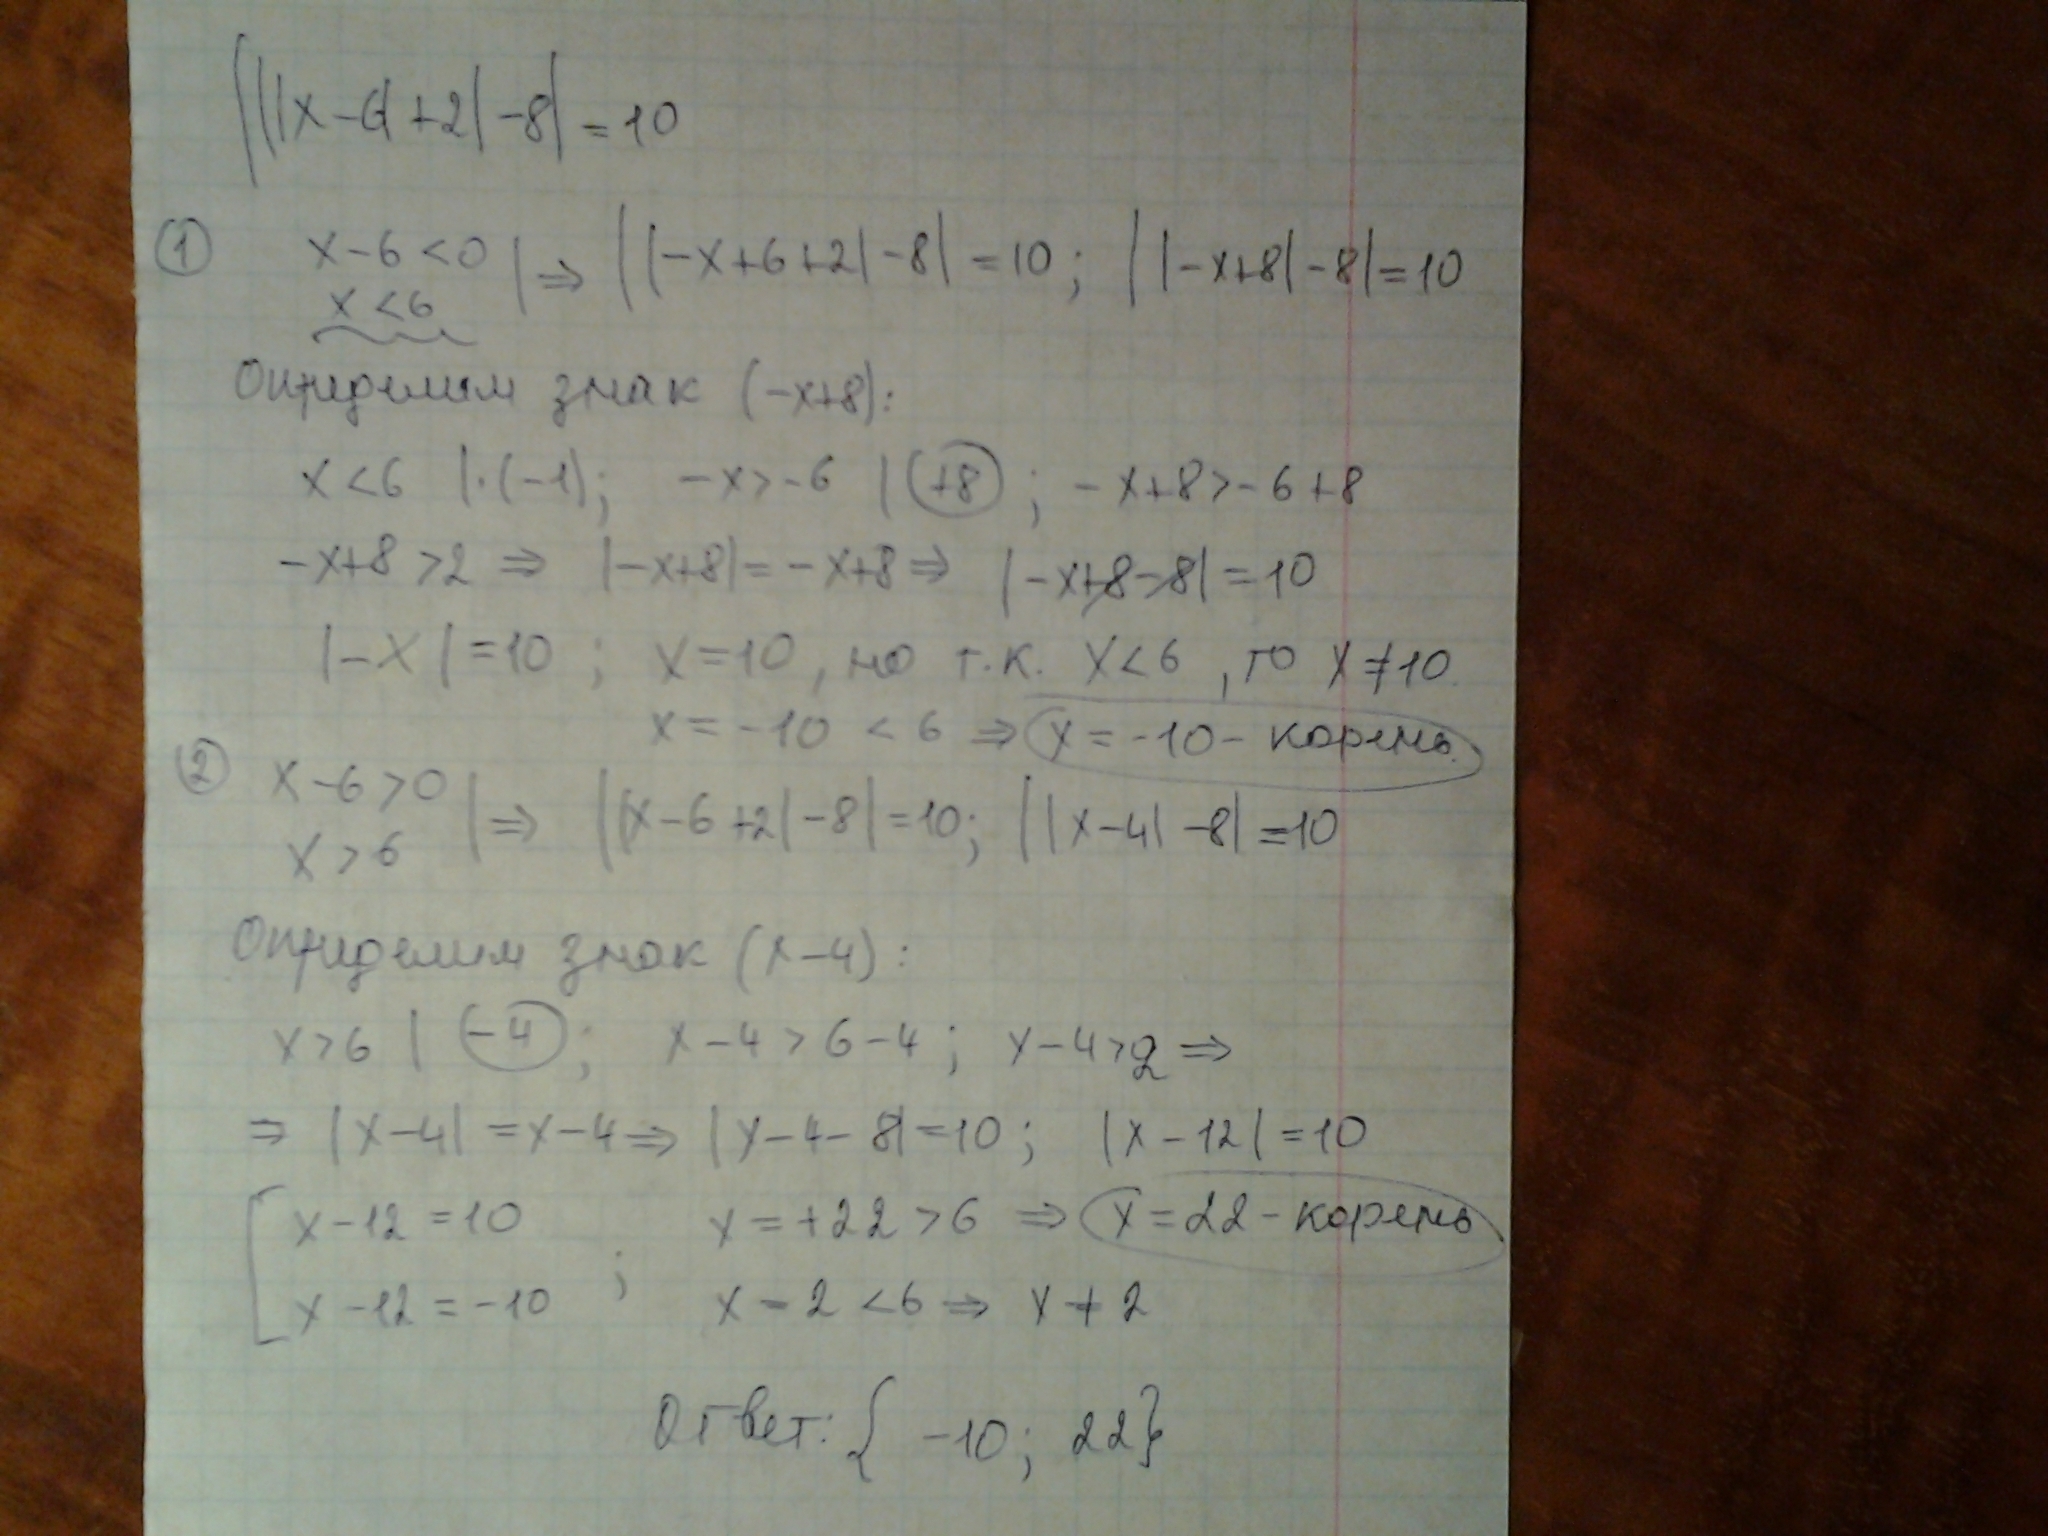 |||x-6|+2|-8|=10
① x-6<0 | ⇒ ||-x+6+2|-8|=10; ||-x+8|-8|=10
x<6
Определим знак (-x+8):
x<6 |·(-1); -x>-6 | +8 ; -x+8>-6+8
-x+8>2 ⇒ |-x+8|=-x+8 ⇒ |-x+8-8|=10
|-x|=10 ; x=10, но т.к. x<6, то x≠10.
x=-10<6 ⇒ x=-10 - корень.
② x-6>0 | ⇒ ||x-6+2|-8|=10; ||x-4|-8|=10
x>6
Определим знак (x-4):
x>6 | -4 ; x-4>6-4; x-4>2 ⇒
⇒ |x-4|=x-4 ⇒ |x-4-8|=10; |x-12|=10
[ x-12=10 ; x=+22>6 ⇒ x=22 - корень
x-12=-10 x=2<6 ⇒ x≠2
Ответ: {-10; 22}